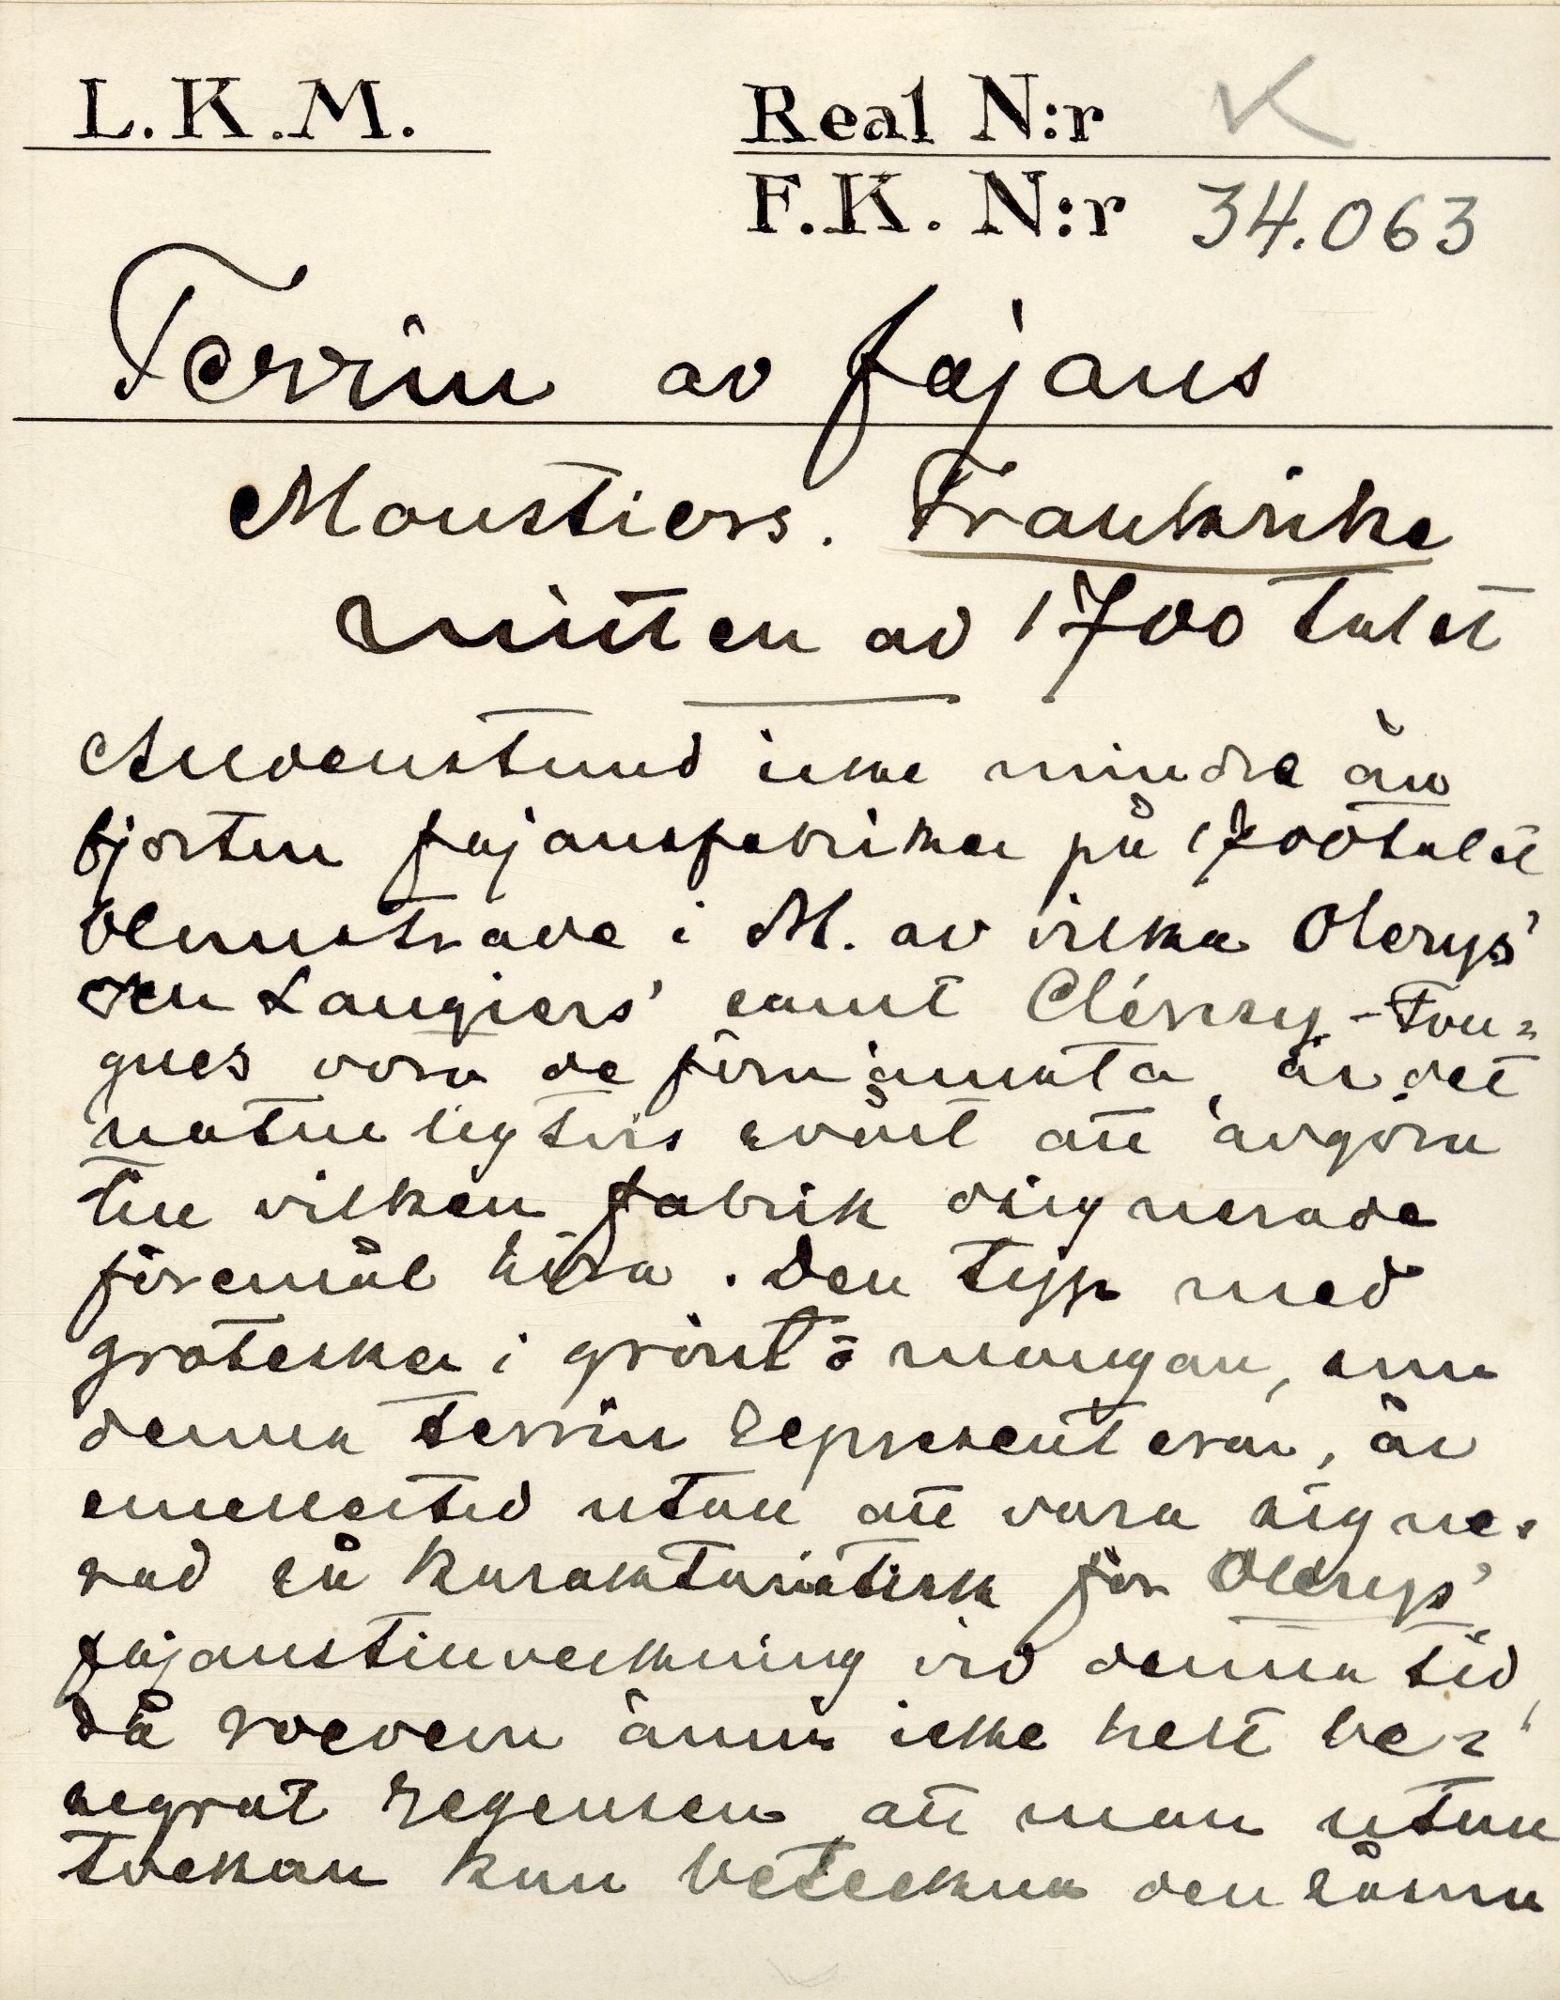 L.K.M.
Real N:r K
F.K. N:r 34.063
Terrin av fajans
Moustiers. Frankrike
mitten av 1700 talet
Alldenstund icke mindre än
fjorton fajansfabriker på 1700talet
blomstrade i M. av vilka Olerys'
och Laugiers' samt Clérissy-Fou=
ques voro de förnämsta, är det
naturligtvis svårt att avgöra
till vilken fabrik osignerade
föremål höra. Den typ med
grotesker i grönt o mangan, som
denna terrin representerar, är
emellertid utan att vara signe=
rad så karaktäristisk för Olerys'
fajanstillverkning vid denna tid,
då rococon ännu icke helt be=
segrat regensen att man utan
tvekan kan beteckna den såsom